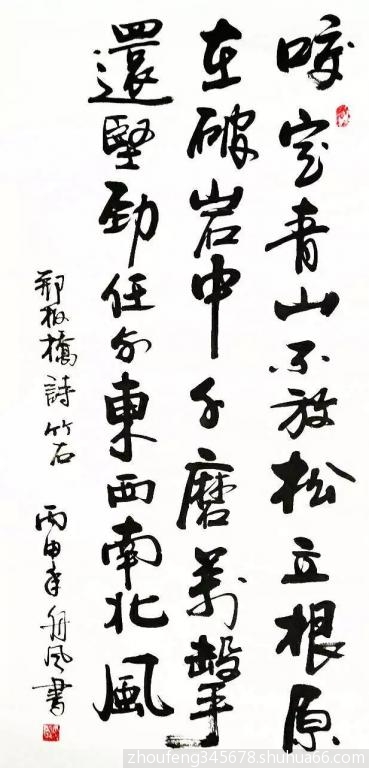 咬定青山不放松立根原
在破岩中千磨萬擊
還堅勁任尔東西南北風
郑板橋詩竹石 丙申年舟风書
zhoufeng345678.shuhua66.com